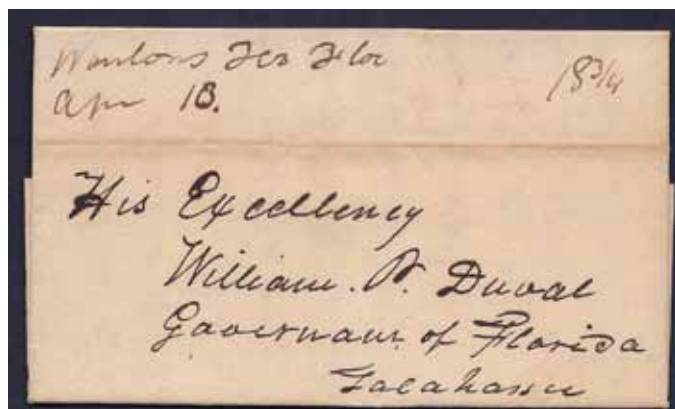 Wantons Ter Flor
18 3/4
Apr 18.
His Excellency
William. P. Duval
Governour of Florida
Talahassee